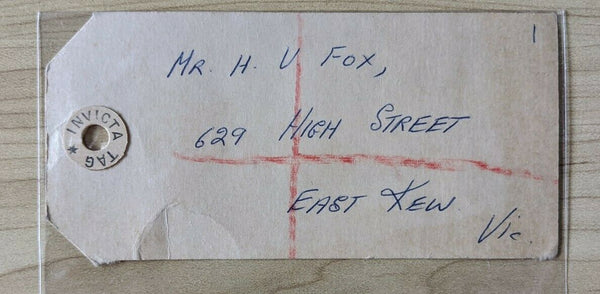 1
MR. H. V FOX,
629 HIGH STREET
EAST KEW.
Vic.
INVICTA TAG ★